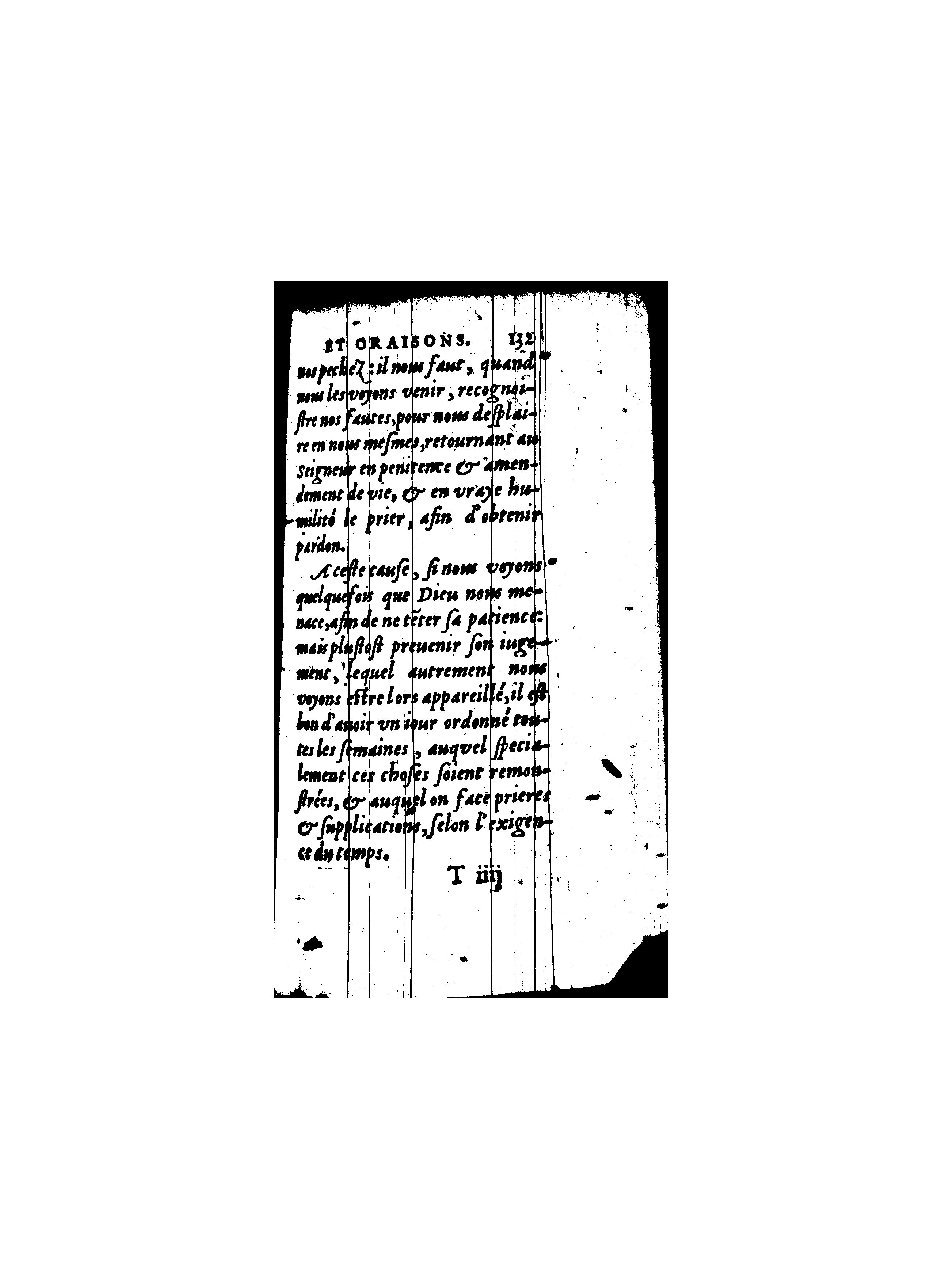 ET ORAISONS. 132
nos pechez: il nous faut, quand
nous les voyons venir, recognoi-
ſtre nos fautes, pour nous deſplai-
re en nous meſmes, retournant au
Seigneur en penitence & amen-
dement de vie, & en vraye hu-
milité le prier, afin d'obtenir
pardon.
A ceſte cauſe, ſi nous voyons
quelquefois que Dieu nous me-
nace, afin de ne tẽter ſa patience:
mais pluſtoſt preuenir ſon iuge-
ment, lequel autrement nous
voyons eſtre lors appareillé, il eſt
bon d'auoir vn iour ordonné tou-
tes les ſemaines, auquel ſpecia-
lement ces choſes ſoient remon-
ſtrées, & auquel on face prieres
& ſupplications, ſelon l'exigen-
ce du temps.
T iiij